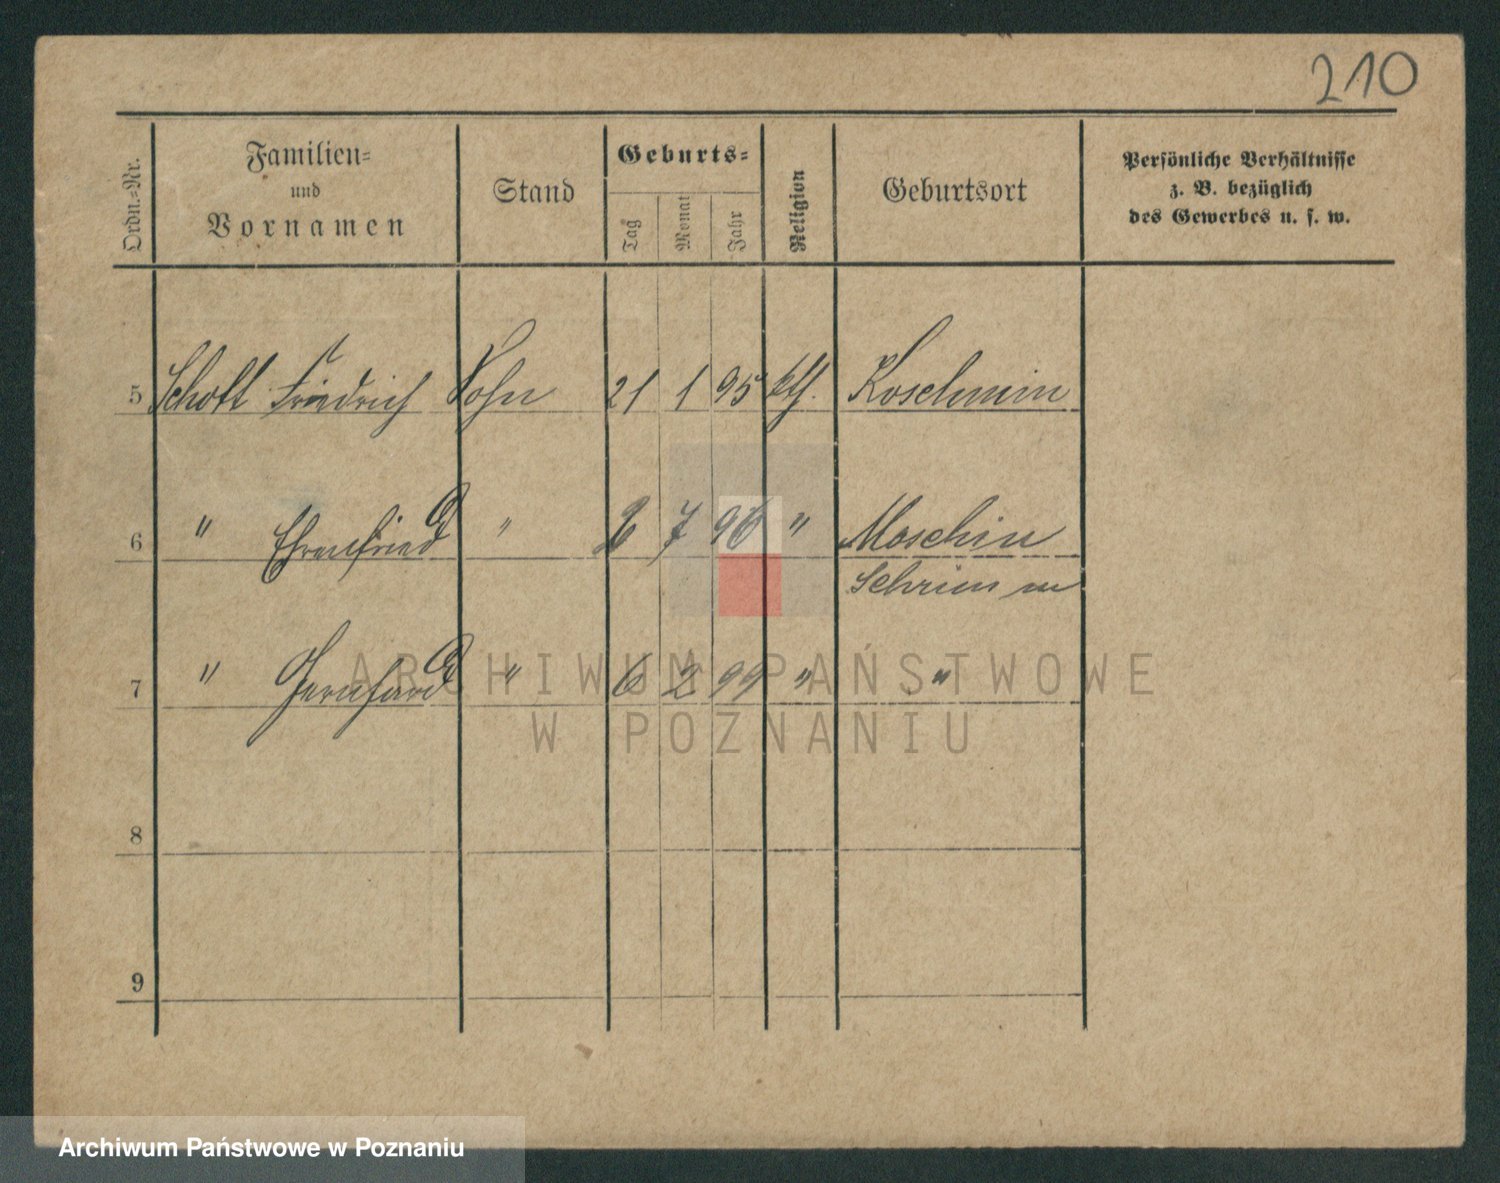 210
Ordn.-Nr.
Familien-
und
Vornamen
Stand
Geburts-
Tag
Monat
Jahr
Religion
Geburtsort
Persönliche Verhältnisse
z. B. bezüglich
des Gewerbes u. s. w.
5 Schott Friedrich Sohn 21 1 95 kth. Koschmin
6 " Ehrenfried " 2 7 96 " Moschin
Schrimm
7 " Gernhard " 6 2 99 " "
8
9
ARCHIWUM PAŃSTWOWE
W POZNANIU
Archiwum Państwowe w Poznaniu